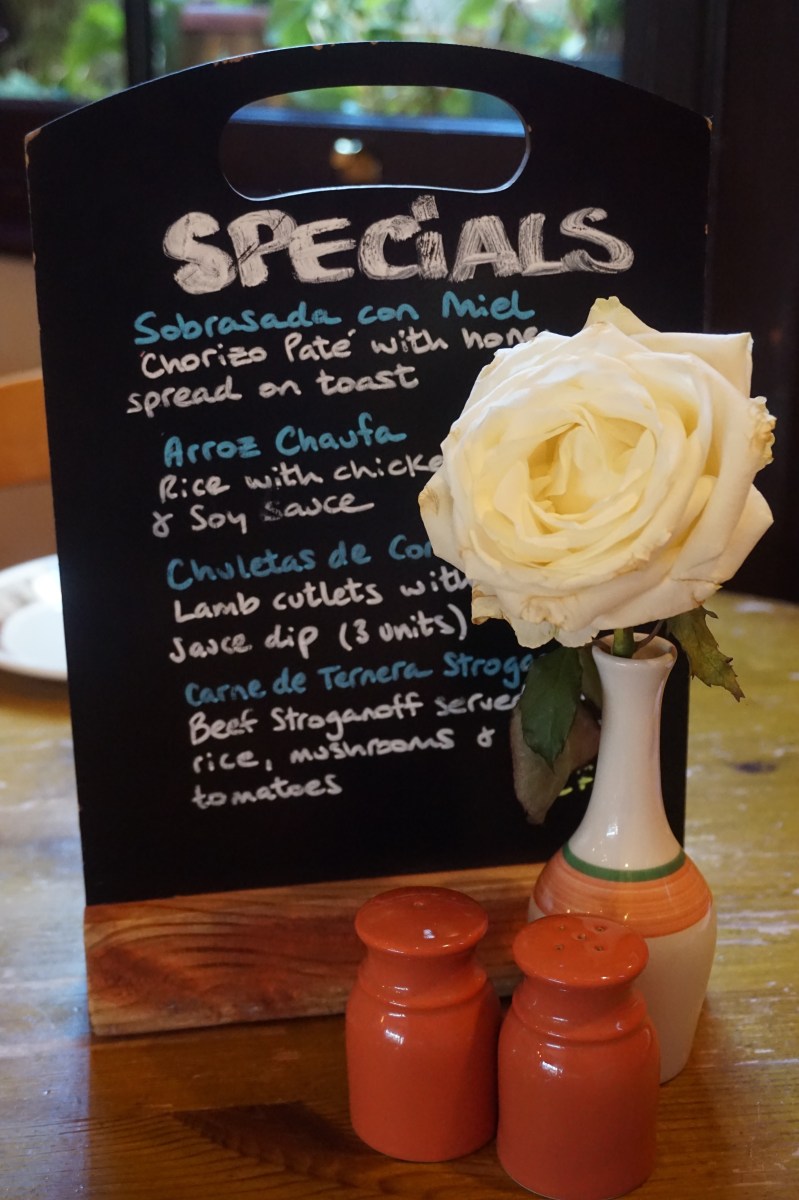 SPECiALS
Sobrasada con Miel
Chorizo Paté with hone
spread on toast
Arroz Chaufa
Rice with chicke
& Soy Sauce
Chuletas de Cor
Lamb cutlets with
Sauce dip (3 units)
Carne de Ternera Stroga
Beef Stroganoff serve
rice, mushrooms &
tomatoes